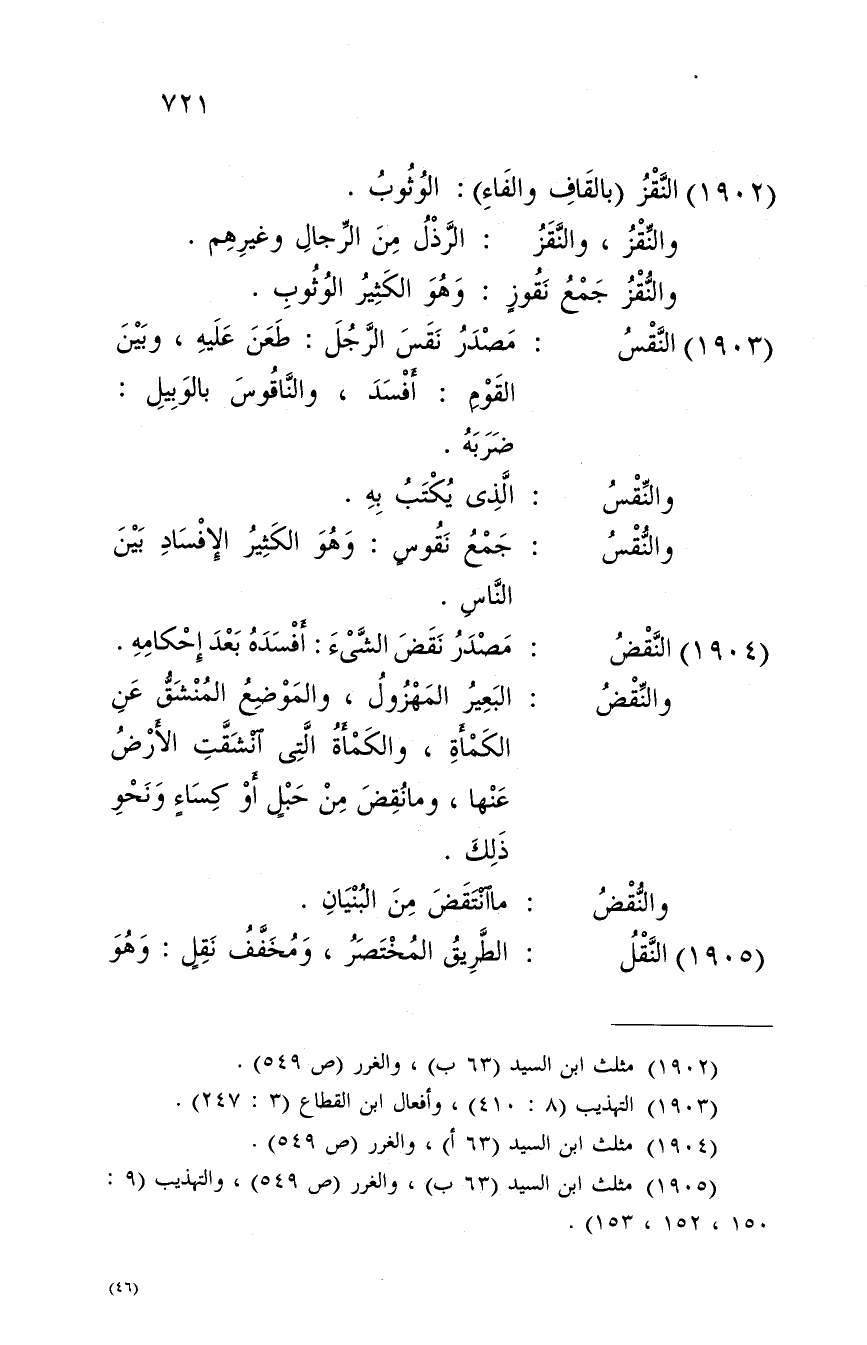 ٧٢١
(١٩٠٢) النَّقْزُ (بالقَافِ والفَاءِ) : الوُثُوبُ .
والنِّقْزُ ، والنَّقَزُ : الرَّذْلُ مِنَ الرِّجالِ وغيرِهِم .
والنُّقْزُ جَمْعُ نَقُوزٍ : وَهُوَ الكَثِيرُ الوُثُوبِ .
(١٩٠٣) النَّقْسُ : مَصْدَرُ نَقَسَ الرَّجُلَ : طَعَنَ عَلَيهِ ، وبَيْنَ
القَوْمِ : أَفْسَدَ ، والنَّاقُوسَ بالوَبِيلِ :
ضَرَبَهُ .
والنِّقْسُ : الَّذِى يُكْتَبُ بِهِ .
والنُّقْسُ : جَمْعُ نَقُوسٍ : وَهُوَ الكَثِيرُ الإِفْسَادِ بَيْنَ
النَّاسِ .
(١٩٠٤) النَّقْضُ : مَصْدَرُ نَقَضَ الشَّىْءَ : أَفْسَدَهُ بَعْدَ إِحْكامِهِ .
والنِّقْضُ : البَعِيرُ المَهْزُولُ ، والمَوْضِعُ المُنْشَقُّ عَنِ
الكَمْأَةِ ، والكَمْأَةُ الَّتِى ٱنْشَقَّتِ الأَرْضُ
عَنْها ، ومانُقِضَ مِنْ حَبْلٍ أَوْ كِسَاءٍ وَنَحْوِ
ذَلِكَ .
والنُّقْضُ : ماٱنْتَقَضَ مِنَ البُنْيَانِ .
(١٩٠٥) النَّقْلُ : الطَّرِيقُ المُخْتَصَرُ ، وَمُخَفَّفُ نَقِلٍ : وَهُوَ
(١٩٠٢) مثلث ابن السيد (٦٣ ب) ، والغرر (ص ٥٤٩) .
(١٩٠٣) التهذيب (٨ : ٤١٠) ، وأفعال ابن القطاع (٣ : ٢٤٧) .
(١٩٠٤) مثلث ابن السيد (٦٣ أ) ، والغرر (ص ٥٤٩) .
(١٩٠٥) مثلث ابن السيد (٦٣ ب) ، والغرر (ص ٥٤٩) ، والتهذيب (٩ :
١٥٠ ، ١٥٢ ، ١٥٣) .
(٤٦)